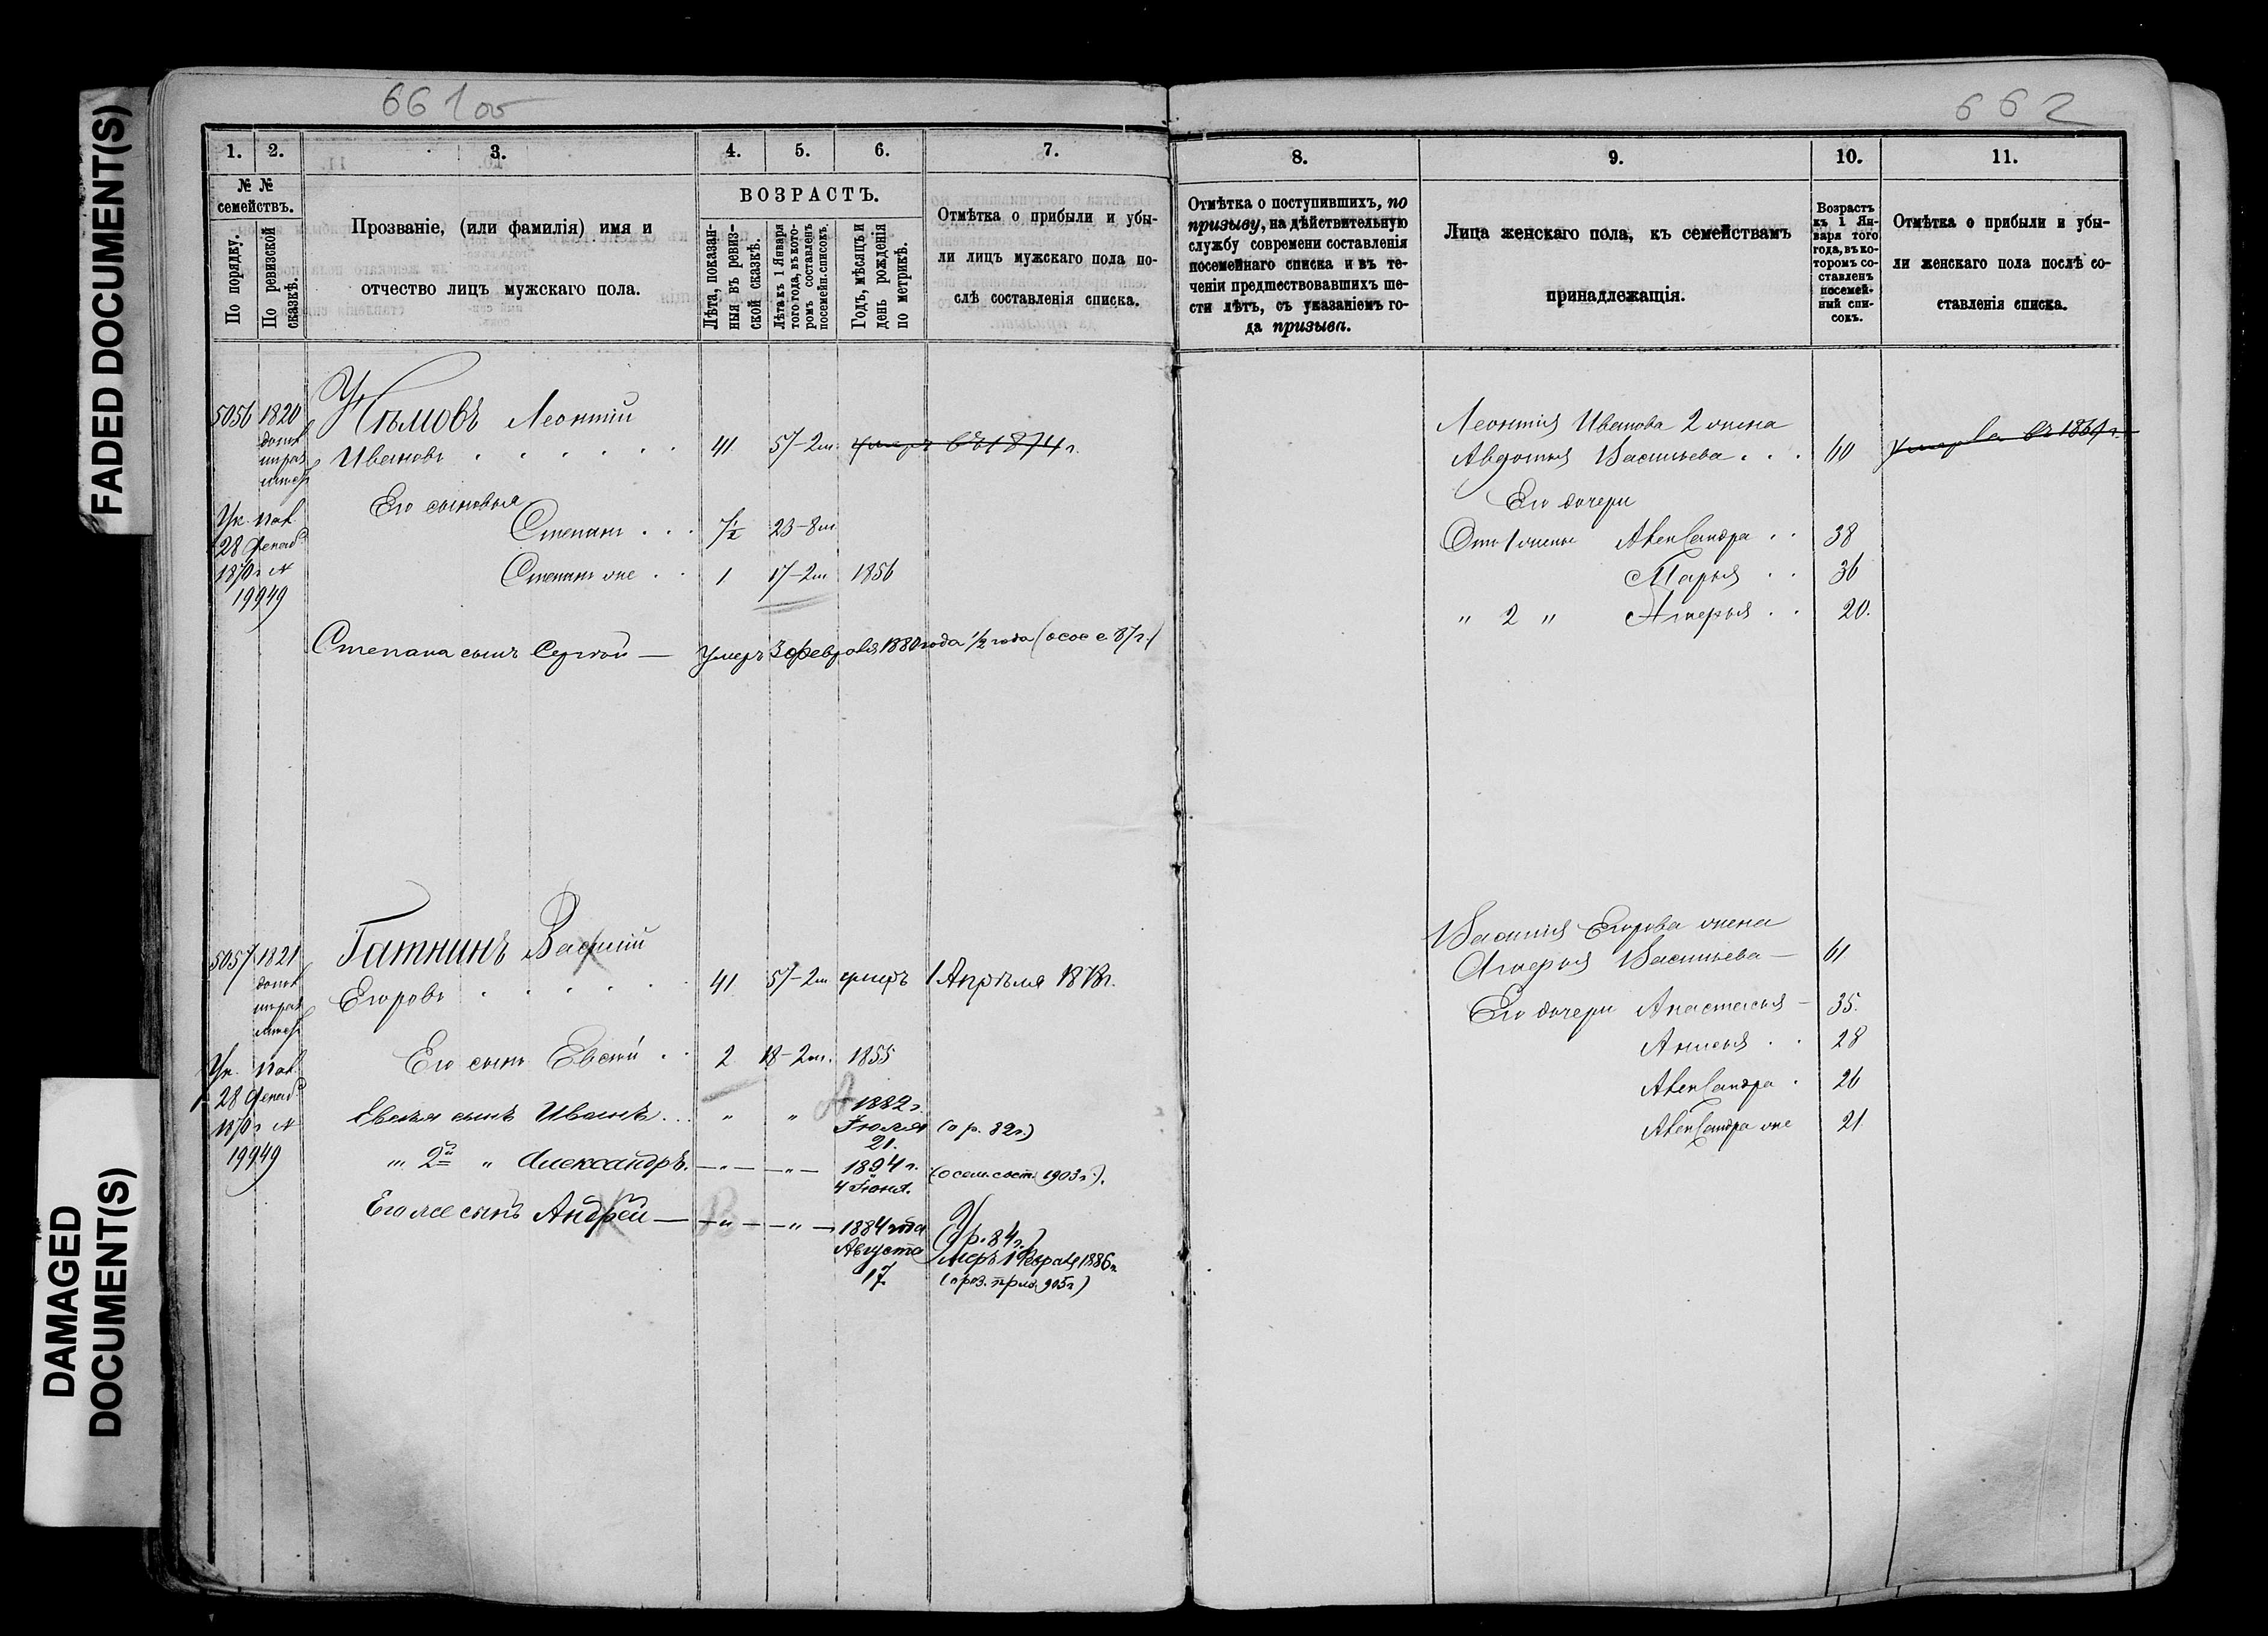 FADED DOCUMENT(S)
DAMAGED
DOCUMENT(S)
661об
662
1.
2.
3.
4.
5.
6.
7.
№ №
семействъ.
По порядку.
По ревизской
сказкѣ.
Прозваніе, (или фамилія) имя и
отчество лицъ мужскаго пола.
ВОЗРАСТЪ.
Лѣта, показан-
ныя въ ревиз-
ской сказкѣ.
Лѣта къ 1 Января
того года, въ кото-
ромъ составленъ
посемейн. списокъ.
Годъ, мѣсяцъ и
день рожденія
по метрикѣ.
Отмѣтка о прибыли и убы-
ли лицъ мужскаго пола по-
слѣ составленія списка.
5056 1820
Леонтій
Ивановъ . . . . . . 41 57-2м. умеръ въ 1874 г.
Его сыновья
Степанъ . . . 7½ 23-8м
Степанъ же . . 1 17-2м 1856
28 1870 г. №
19949
Степана сынъ Сергѣй — Умеръ 3 февраля 1880 года ½ года
5057 1821
Гатнинъ Василій
Егоровъ . . . . . . 41 57-2м умеръ 1 Апрѣля 1873г.
Его сынъ Евсѣй . . 2 18-2м. 1855
28 1870 г. №
19949
Евсѣя сынъ Иванъ... " " 1882 г.
Іюля
21. (о р. 82г.)
" 2й " Александръ. — " — — " — 1894 г.
4 Іюня. (о сем. сост. 1903 г.).
Его же сынъ Андрей — — " — — " — 1884 года
Августа
17. (р. 84 г.)
Умеръ 1 Февраля 1886 г.
8.
9.
10.
11.
Отмѣтка о поступившихъ, по
призыву, на дѣйствительную
службу современи составленія
посемейнаго списка и въ те-
ченіи предшествовавшихъ ше-
сти лѣтъ, съ указаніемъ го-
да призыва.
Лица женскаго пола, къ семействамъ
принадлежащія.
Возрастъ
къ 1 Ян-
варя того
года, въ ко-
торомъ со-
ставленъ
посемей-
ный спи-
сокъ.
Отмѣтка о прибыли и убы-
ли женскаго пола послѣ со-
ставленія списка.
Леонтія Иванова 2 жена
Авдотья Васильева . . . 60 умерла въ
Его дочери
Отъ 1 жены Александра . . 38
Марья . . 36
" 2 " . . 20.
Василія Егорова жена
Васильева — 61
Его дочери Анастасья — 35.
Анисья . . 28
Александра . 26
Александра же 21.